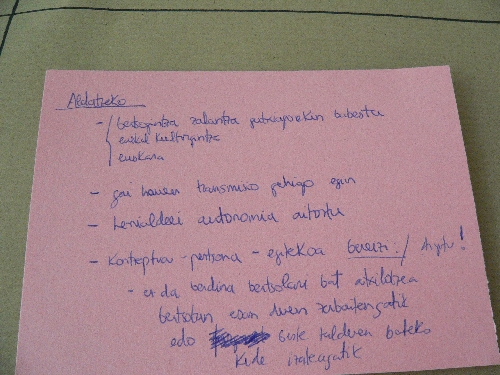 Aldatzeko
- bertsogintza zalantza gutxiagorekin babestu
euskal kulturgintza
euskara
- gai hauen transmisio gehiago egin
- herrialdeei autonomia aitortu
- kontzeptua - pertsona - egitekoa bereizi /!
- ez da berdina bertsolari bat atxilotzea
bertsotan esan duen zerbaitengatik
edo beste talderen bateko
kide izateagatik